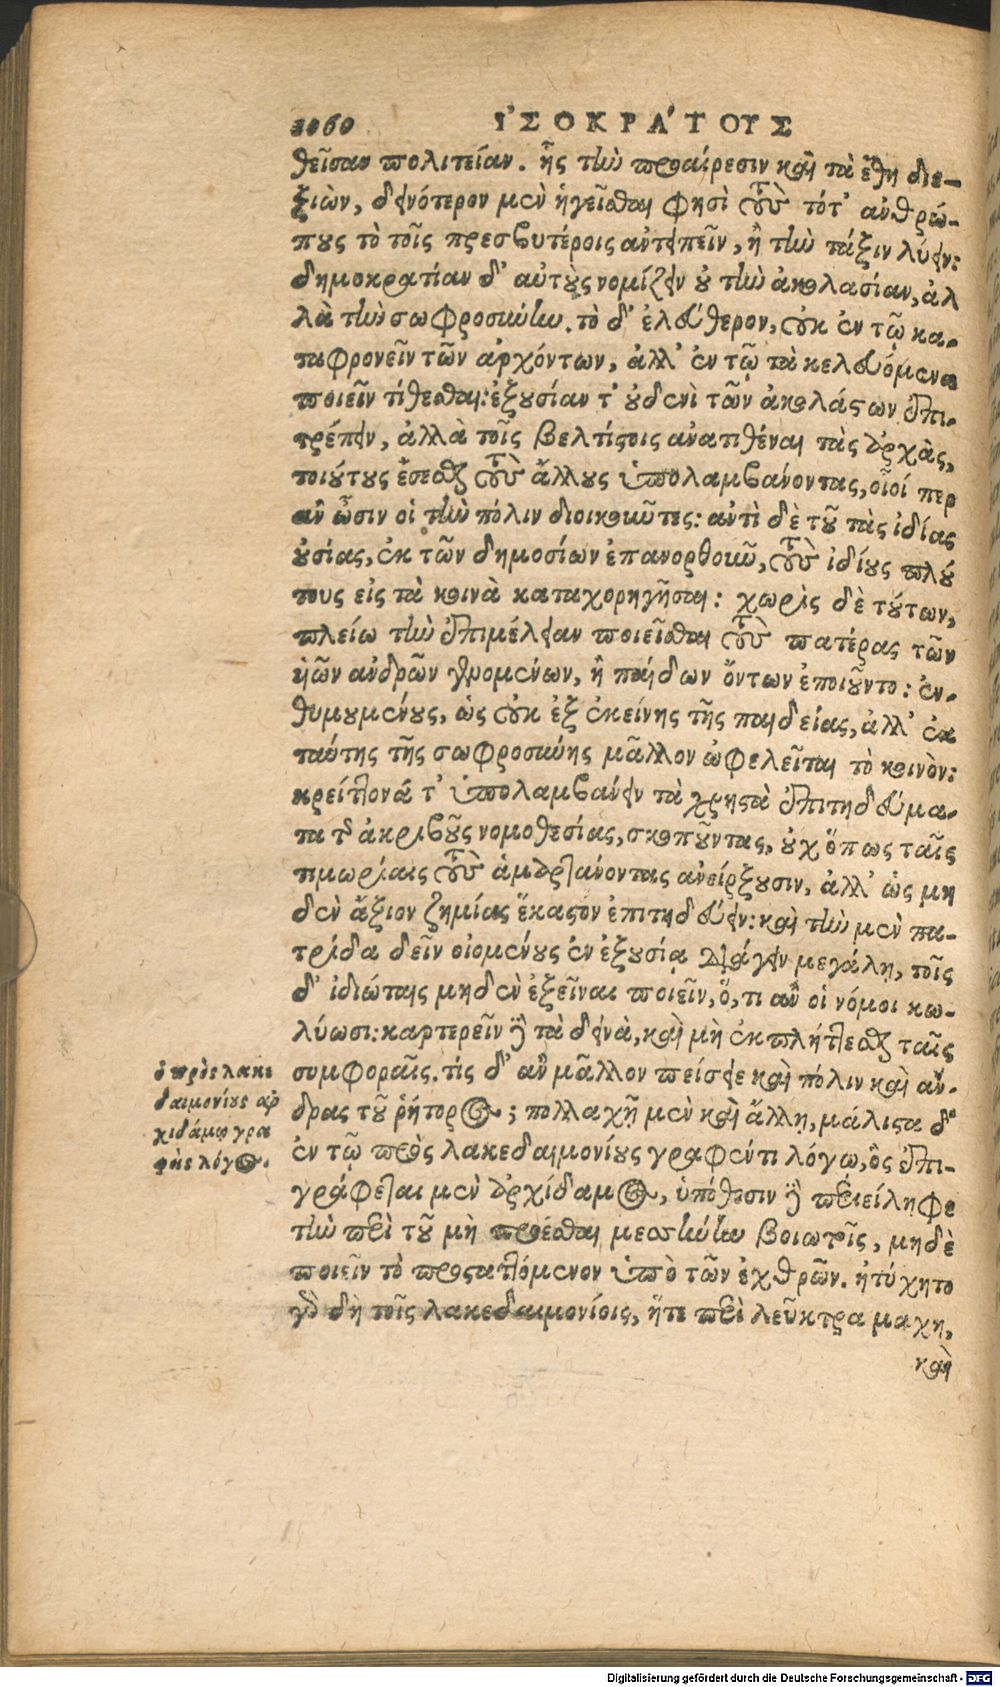 1060 ἸΣΟΚΡΑ'ΤΟΥΣ
θεῖσαν πολιτείαν. ἧς τὴν προαίρεσιν καὶ τὰ ἔθη διε-
ξιὼν, δεινότερον μὲν ἡγεῖσθαι φησὶ τοὺς τότ' ἀνθρώ-
πους τὸ τοῖς πρεσβυτέροις ἀντειπεῖν, ἢ τὴν τάξιν λύειν:
δημοκρατίαν δ' αὐτοὺς νομίζειν οὐ τὴν ἀκολασίαν, ἀλ
λὰ τὴν σωφροσύνην. τὸ δ' ἐλεύθερον, οὐκ ἐν τῷ κα-
ταφρονεῖν τῶν ἀρχόντων, ἀλλ' ἐν τῷ τὰ κελευόμενα
ποιεῖν τίθεσθαι: ἐξουσίαν τ' οὐδενὶ τῶν ἀκολάστων ἐπι-
τρέπειν, ἀλλὰ τοῖς βελτίστοις ἀνατιθέναι τὰς ἀρχὰς,
τοιούτους ἔσεσθαι τοὺς ἄλλους ὑπολαμβάνοντας, οἷοί περ
ἂν ὦσιν οἱ τὴν πόλιν διοικοῦντες: ἀντὶ δὲ τοῦ τὰς ἰδίας
οὐσίας, ἐκ τῶν δημοσίων ἐπανορθοῦν, τοὺς ἰδίους πλού
τους εἰς τὰ κοινὰ καταχορηγῆσαι: χωρὶς δὲ τούτων,
πλείω τὴν ἐπιμέλειαν ποιεῖσθαι τοὺς πατέρας τῶν
υἱῶν ἀνδρῶν γενομένων, ἢ παίδων ὄντων ἐποιοῦντο: ἐν-
θυμουμένους, ὡς οὐκ ἐξ ἐκείνης τῆς παιδείας, ἀλλ' ἐκ
ταύτης τῆς σωφροσύνης μᾶλλον ὠφελεῖται τὸ κοινὸν:
κρείττονά τ' ὑπολαμβάνειν τὰ χρηστὰ ἐπιτηδεύμα-
τα τῆς ἀκριβοῦς νομοθεσίας, σκοποῦντας, οὐχ ὅπως ταῖς
τιμωρίαις τοὺς ἁμαρτάνοντας ἀνείρξουσιν, ἀλλ' ὡς μη
δὲν ἄξιον ζημίας ἕκαστον ἐπιτηδεύειν: καὶ τὴν μὲν πα-
τρίδα δεῖν οἰομένους ἐν ἐξουσίᾳ διάγειν μεγάλῃ, τοῖς
δ' ἰδιώταις μηδὲν ἐξεῖναι ποιεῖν, ὅ, τι ἂν οἱ νόμοι κω-
λύωσι: καρτερεῖν δὲ τὰ δεινὰ, καὶ μὴ ἐκπλήττεσθαι ταῖς
συμφοραῖς. τίς δ' ἂν μᾶλλον πείσειε καὶ πόλιν καὶ ἄν-
δρας τοῦ ῥήτορος; πολλαχῇ μὲν καὶ ἄλλῃ, μάλιστα δ'
ἐν τῷ πρὸς λακεδαιμονίους γραφέντι λόγῳ, ὃς ἐπι-
γράφεται μὲν ἀρχίδαμος, ὑπόθεσιν δὲ περιείληφε
τὴν περὶ τοῦ μὴ προέσθαι μεσσήνην βοιωτοῖς, μηδὲ
ποιεῖν τὸ προσταττόμενον ὑπὸ τῶν ἐχθρῶν. ἠτύχητο
γὰρ δὴ τοῖς λακεδαιμονίοις, ἥτε περὶ λεῦκτρα μαχη,
καὶ
ὁ πρὸς λακε
δαιμονίους ἀρ
χιδάμῳ γρα
φεὶς λόγος.
Digitalisierung gefördert durch die Deutsche Forschungsgemeinschaft - DFG